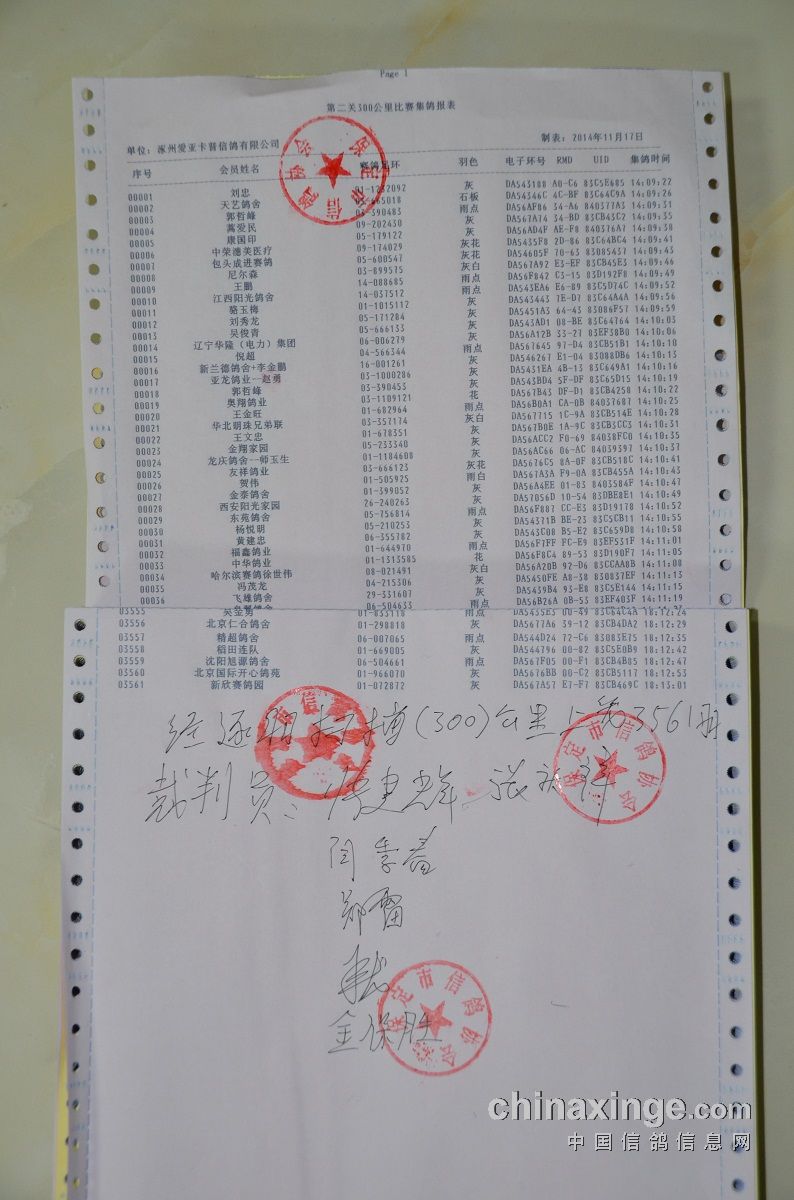 Page 1
第二关300公里比赛集鸽报表
单位: 涿州爱亚卡普信鸽有限公司 制表: 2014年11月17日
序号 会员姓名 赛鸽足环 羽色 电子环号 RMD UID 集鸽时间
00001 刘忠 01-1232092 灰 DA543188 A0-C6 83C5E685 14:09:22
00002 天艺鸽舍 石板 DA54346C 4C-BF 83C64C9A 14:09:26
00003 郭哲峰 03-390483 雨点 DA56AF86 34-A6 840377A3 14:09:31
00004 蔫爱民 09-202430 灰 DA567A74 34-BD 83CB43C2 14:09:35
00005 康国印 05-179122 灰 DA56AD4F AE-F8 840376A7 14:09:38
00006 中荣德芙医疗 09-174029 灰花 DA5435F8 2D-86 83C64BC4 14:09:41
00007 包头成进赛鸽 05-600547 灰花 DA54605F 70-63 83085437 14:09:43
00008 尼尔森 03-899575 灰白 DA567A92 E3-EF 83CB45E3 14:09:46
00009 王鹏 14-088685 雨点 DA56F842 C3-15 83D192F8 14:09:49
00010 江西阳光鸽舍 14-037512 雨点 DA543EA6 E6-89 83C5D74C 14:09:52
00011 骆玉梅 01-1015112 灰 DA543443 7E-D7 83C64A4A 14:09:56
00012 刘秀龙 05-171284 灰 DA5451A3 64-43 83086F57 14:09:59
00013 吴俊青 05-666133 灰 DA543AD1 08-BE 83C64764 14:10:03
00014 辽宁华隆（电力）集团 06-006279 灰 DA56A12B 33-27 03EF38B0 14:10:06
00015 倪超 04-566344 雨点 DA567645 97-D4 83CB51B1 14:10:10
00016 新兰德鸽舍+李金鹏 16-001261 灰 DA546267 E1-04 83088DB6 14:10:13
00017 亚龙鸽业--赵勇 03-1000286 灰 DA5431EA 4B-13 83C649A1 14:10:16
00018 郭哲峰 03-390453 灰 DA543BD4 5F-DF 83C65D15 14:10:19
00019 奥翔鸽业 03-1109121 花 DA567B43 DF-D1 83CB4258 14:10:22
00020 王金旺 01-682964 雨点 DA56B0A1 CA-0B 84037687 14:10:25
00021 华北明珠兄弟联 03-357174 灰白 DA567715 1C-9A 83CB514E 14:10:28
00022 王文忠 01-678351 灰 DA567B0E 1A-9C 83CB3CC3 14:10:31
00023 金翔家园 05-233340 灰 DA56ACC2 F0-69 84038FC0 14:10:35
00024 龙庆鸽舍--师玉生 01-1184608 灰 DA56AC66 06-AC 84039397 14:10:37
00025 友祥鸽业 03-666123 灰花 DA5676C5 8A-0F 83CB518C 14:10:41
00026 贺伟 01-505925 雨白 DA567A3A F9-0A 83CB455A 14:10:43
00027 金泰鸽舍 01-399052 灰 DA56A4EE 01-83 8403584F 14:10:47
00028 西安阳光家园 26-240263 灰 DA57056D 10-54 83DBE8E1 14:10:49
00029 东苑鸽舍 05-756814 雨点 DA56F887 CC-E3 83D19178 14:10:52
00030 杨悦明 05-210253 灰 DA54371B BE-23 83C5CB11 14:10:55
00031 黄建忠 06-355782 灰 DA543C08 B5-E2 83C659D8 14:10:58
00032 福鑫鸽业 01-644970 雨点 DA56F7FF FC-E9 83EF531F 14:11:01
00033 中华鸽业 01-1313585 花 DA56F8C4 89-53 83D190F7 14:11:05
00034 哈尔滨赛鸽徐世伟 08-021491 灰白 DA56A20B 92-D6 83CCAA08 14:11:08
00035 冯茂龙 04-215306 灰 DA5450FE A8-38 830837EF 14:11:13
00036 飞雄鸽舍 29-331607 灰 DA5439B4 93-E8 83C5E144 14:11:15
06-504633 雨点 DA56B26A 0B-53 83EF403F 14:11:19
03555 吴金勇 01-833118 雨点 DA5435E3 00-49 83C64C4A 18:12:24
03556 北京仁合鸽舍 01-298818 灰 DA5677A6 39-12 83CB4DA2 18:12:29
03557 精超鸽舍 06-007065 雨点 DA544D24 72-C6 83083E75 18:12:35
03558 稻田连队 01-669005 灰 DA544796 00-82 83C5E0B9 18:12:42
03559 沈阳旭源鸽舍 06-504661 雨点 DA567F05 00-F1 83CB4B85 18:12:47
03560 北京国际开心鸽苑 01-966070 灰 DA5676BB 00-C2 83CB5117 18:12:53
03561 新欣赛鸽园 01-072872 灰 DA567A57 E7-F7 83CB469C 18:13:01
经逐羽扫描(300)公里上笼3561羽
裁判员:
闫季春
郑雷
金保胜
保定市信鸽协会
保定市信鸽协会
保定市信鸽协会
chinaxinge.com
中国信鸽信息网